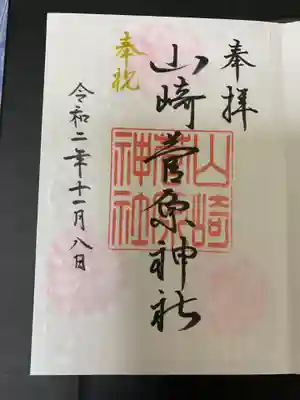 奉拝
山崎菅原神社
奉祝
令和二年十一月八日
山崎
菅原
神社